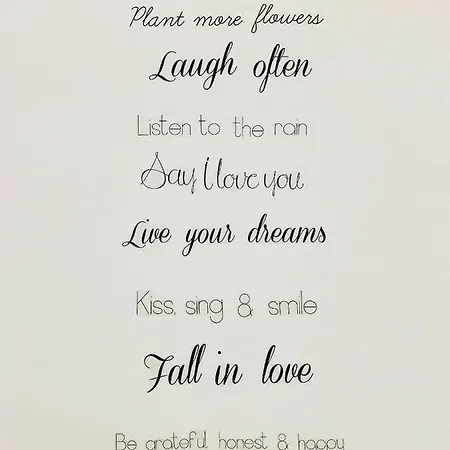 Plant more flowers
Laugh often
Listen to the rain
Say I love you
Live your dreams
Kiss, sing & smile
Fall in love
Be grateful, honest & happy